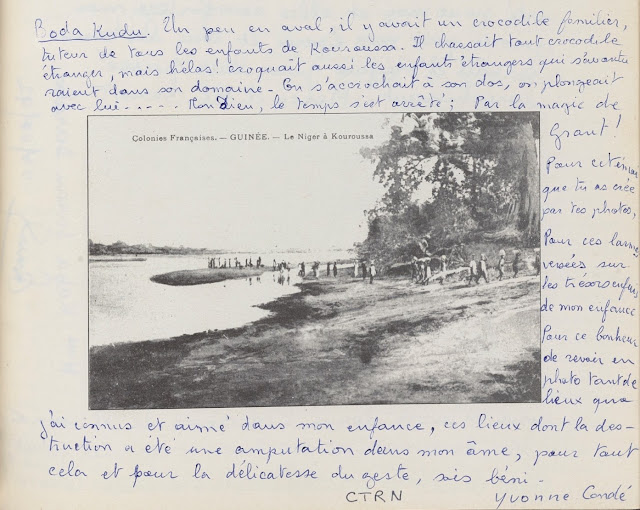 Boda Kudu. Un peu en aval, il y avait un crocodile familier,
tuteur de tous les enfants de Kouroussa. Il chassait tout crocodile
étranger, mais hélas! croquait aussi les enfants étrangers qui s'aventu
raient dans son domaine - On s'accrochait à son dos, on plongeait
avec lui - - - - - Mon Dieu, le temps s'est arrêté; Par la magie de
Grant!
Colonies Françaises. — GUINÉE. — Le Niger à Kouroussa
Pour cet
que tu as crée
par tes photos,
Pour ces larmes
versées sur
les trésors enfouis
de mon enfance
Pour ce bonheur
de revoir en
photo tant de
lieux que
j'ai connus et aimé dans mon enfance, ces lieux dont la des-
truction a été une amputation dans mon âme, pour tout
cela et pour la délicatesse du geste, sois béni -
CTRN
Yvonne Condé